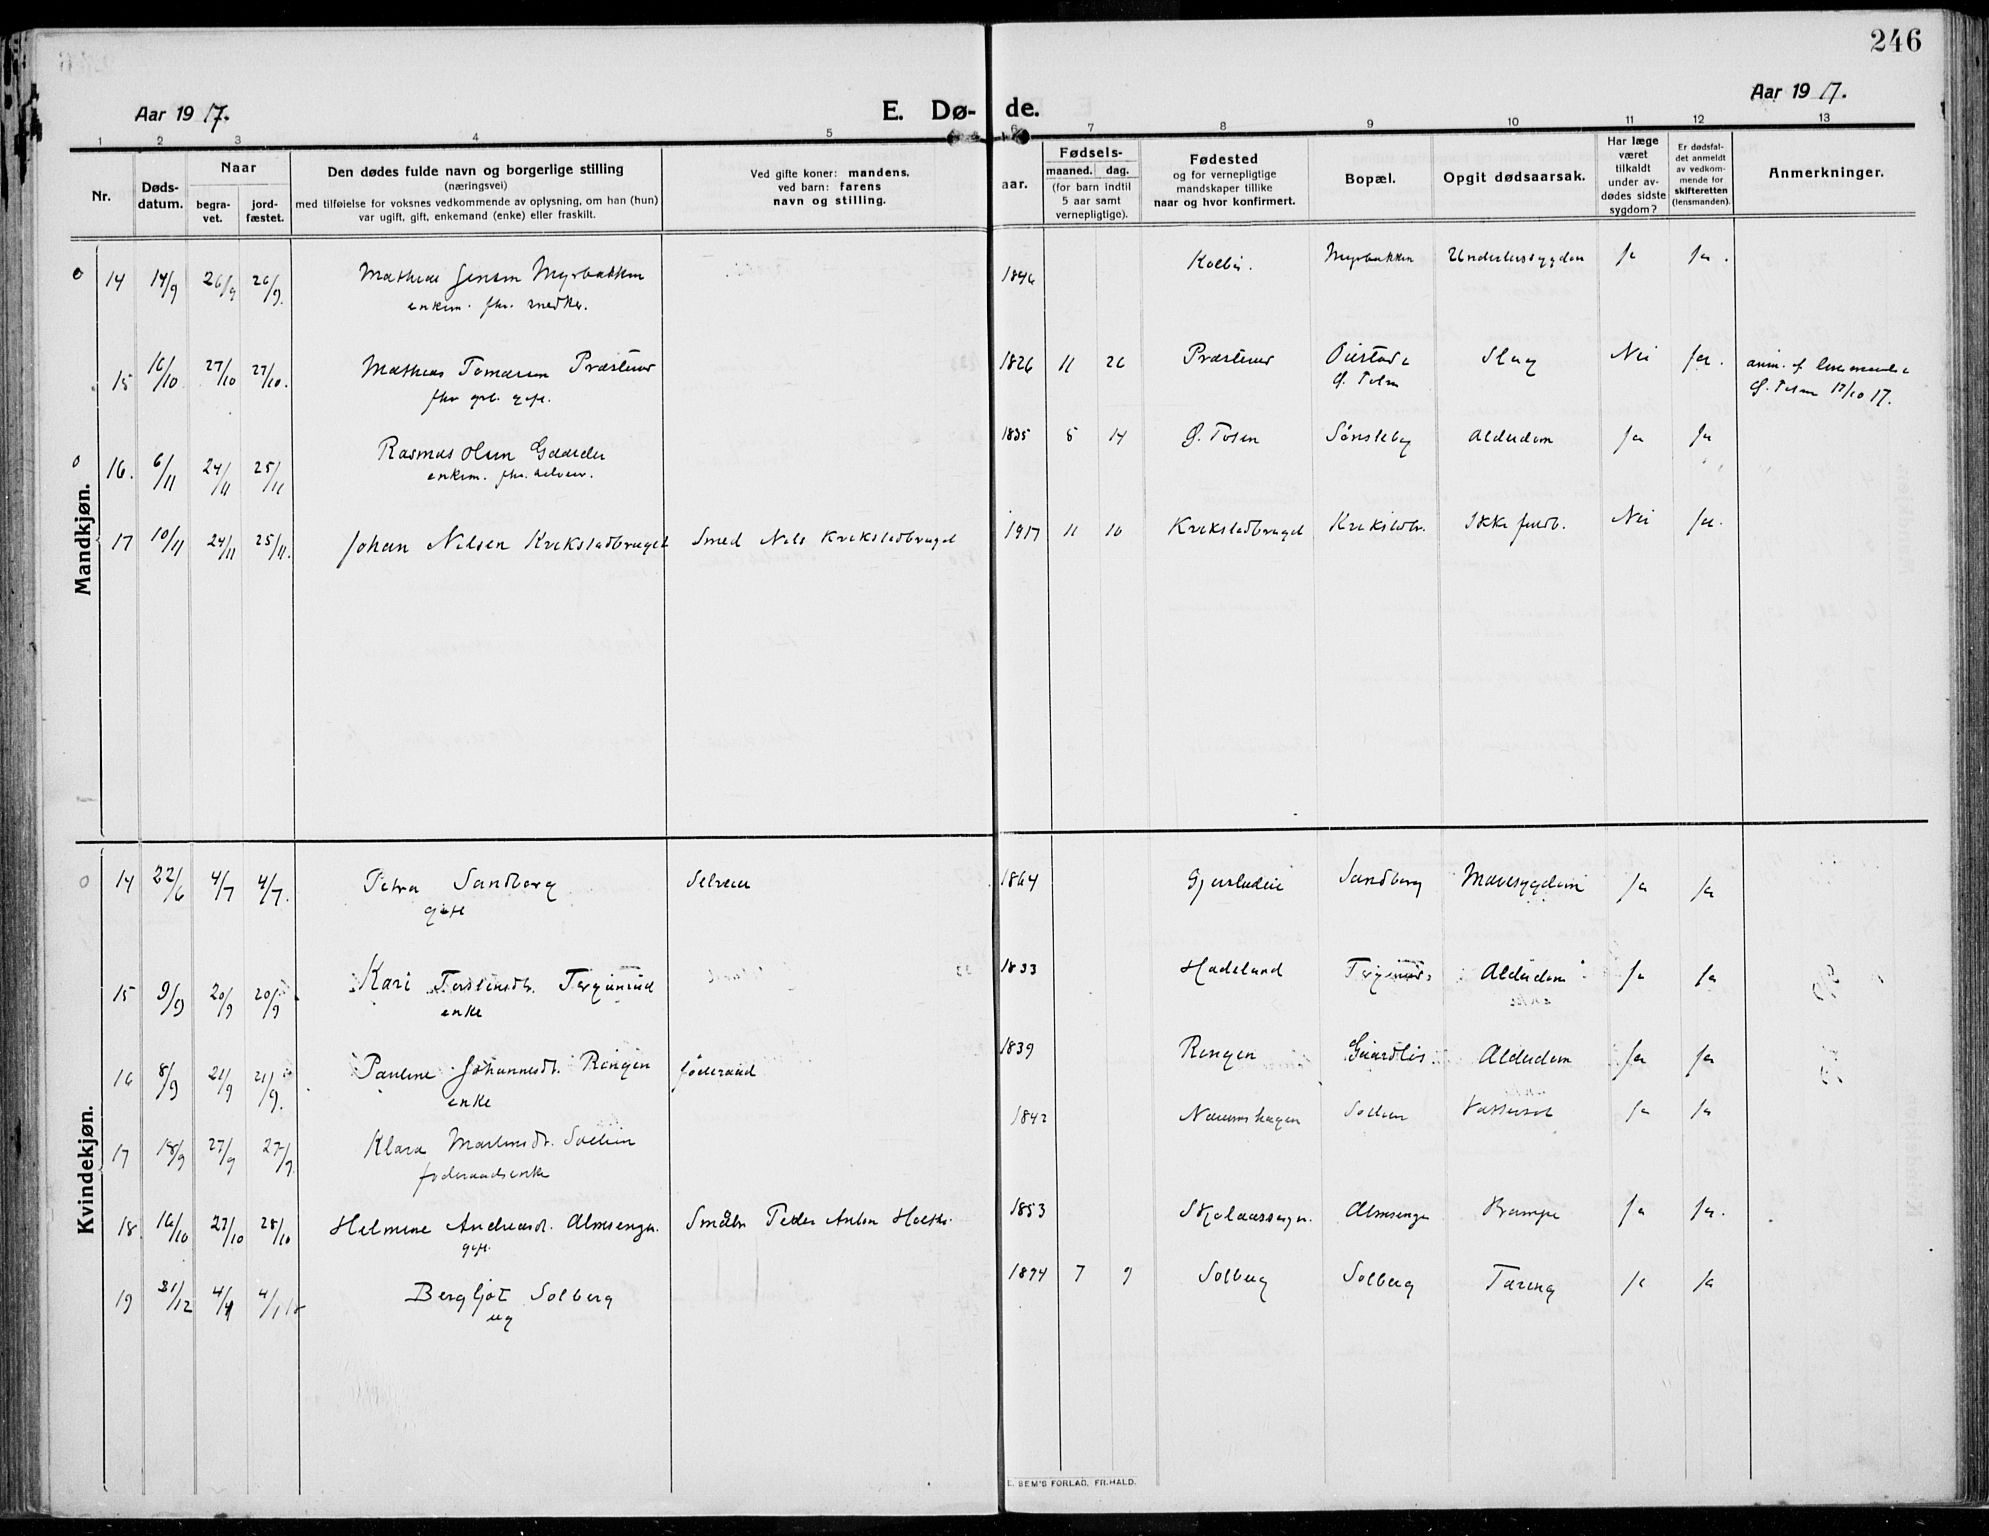 246
Aar 1917.
E. Dø-
de.
Aar 1917.
1 2 3 4 5 6 7 8 9 10 11 12 13
Nr.
Døds-
datum.
Naar
begra-
vet.
jord-
fæstet.
Den dødes fulde navn og borgerlige stilling
(næringsvei)
med tilføielse for voksnes vedkommende av oplysning, om han (hun)
var ugift, gift, enkemand (enke) eller fraskilt.
Ved gifte koner: mandens,
ved barn: farens
navn og stilling.
aar.
Fødsels-
maaned. dag.
(for barn indtil
5 aar samt
vernepligtige).
Fødested
og for vernepligtige
mandskaper tillike
naar og hvor konfirmert.
Bopæl.
Opgit dødsaarsak.
Har læge
været
tilkaldt
under av-
dødes sidste
sygdom?
Er dødsfal-
det anmeldt
av vedkom-
mende for
skifteretten
(lensmanden).
Anmerkninger.
Mandkjøn.
14 14/9 26/9 26/9. Mathias Jensen Myrbakken 1846 Kolbu. Myrbakken Underlivssygdom Ja Ja.
enkem. fhv. snedker.
15 16/10 27/10 27/10. Mathias Tomasen Præsterud 1826 11 26 Præsterud Slag Nei Ja. anm. af
fhv grb. gift. Ø. Toten Ø. Toten 17/10 17.
16. 6/11 24/11 25/11 Rasmus Olsen 1835 5 14 Ø. Toten Sønsteby Alderdom Ja Ja
enkem. fhv. selveier.
17 10/11 24/11 25/11. Johan Nilsen Krekstadbruget Smed Nils Krekstadbruget 1917 11 10 Krekstadbruget Krekstadbr. Ikke fuldb. Nei Ja.
Kvindekjøn.
14 22/6 4/7 4/7. Petra Sandberg Selveier 1864 Sandberg Mavesygdom Ja Ja
gift
15 9/9 20/9 20/9 Kari 1833 Hadeland Alderdom Ja Ja
enke
16 8/9 21/9 21/9. Pauline Johannesdt. Ringen føderaad 1839 Ringen Alderdom Ja Ja
enke
17 18/9 27/9 27/9. Klara Martinsdt. 1842 Vattersot Ja Ja
føderaadsenke
18. 16/10 27/10 28/10 Helmine Andreasdt. Almsengen. Småbr. Peder Anton 1853 Almsengen Krampe Ja Ja.
gift.
19 31/12 4/1 4/1 18 Bergljot Solberg 1894 7 9 Solberg Solberg Tæring Ja Ja
ug
E. SEM'S FORLAG, FR.HALD.